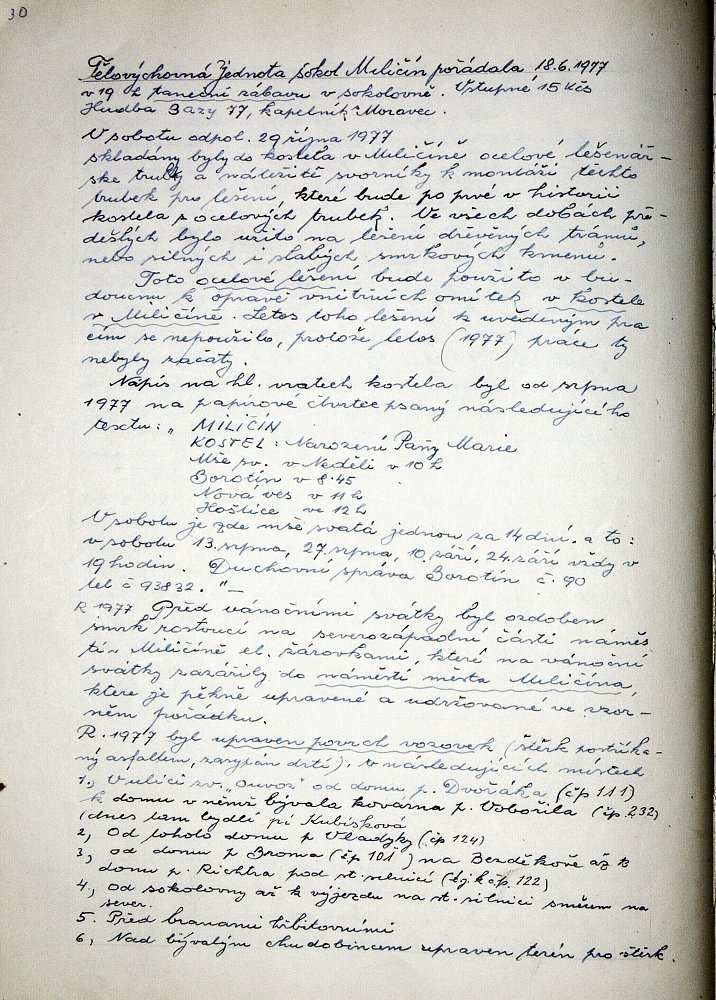 30
Tělovýchovná Jednota Sokol Miličín pořádala 18.6.1977
v 19 h taneční zábavu v sokolovně. Vstupné 15 Kčs
Hudba Bazy 77, kapelník Moravec.
V sobotu odpol. 29 října 1977
skládány byly do kostela v Miličíně ocelové lešenář-
ské trubky a náležité svorníky k montáži těchto
trubek pro lešení, které bude po prvé v historii
kostela z ocelových trubek. Ve všech dobách pře-
dešlých bylo užito na lešení dřevěných trámů,
nebo silných i slabých smrkových kmenů.
Toto ocelové lešení bude použito v bu-
doucnu k opravě vnitřních omítek v kostele
v Miličíně. Letos toho lešení k uvedeným pra
cím se nepoužilo, protože letos (1977) práce ty
nebyly začaty.
Nápis na hl. vratech kostela byl od srpna
1977 na papírové čtvrtce psaný následujícího
textu: „ MILIČÍN
KOSTEL: Narození Panny Marie
Mše sv. v Neděli v 10 h
Borotín v 8.45
Nová ves v 11 h
Hoštice ve 12 h
V sobotu je zde mše svatá jednou za 14 dní. a to:
v sobotu 13. srpna, 27. srpna, 10. září, 24. září vždy v
19 hodin. Duchovní správa Borotín č. 90
tel č 93832. "—
R 1977 Před vánočními svátky byl ozdoben
smrk rostoucí na severozápadní části náměs
tí v Miličíně el. žárovkami, které na vánoční
svátky zazářily do náměstí města Miličína,
které je pěkně upravené a udržované ve vzor-
ném pořádku.
R. 1977 byl upraven povrch vozovek (štěrk postříka-
ný asfaltem, zasypán drtí); v následujících místech
1., V ulici zv. „Ouvoz" od domu p. Dvořáka (čp 111)
k domu v němž bývala kovárna p. Vobořila (čp. 232)
(dnes tam bydlí pí Kubísková
2, Od tohoto domu p Vladyky (čp 124)
3, od domu p Broma (čp 101) na Bezděkově až k
domu p. Richtra pod st. silnicí (tj. k čp. 122)
4., od sokolovny až k výjezdu na st. silnici směrem na
sever.
5. Před branami hřbitovními
6, Nad bývalým chudobincem upraven terén pro štěrk.